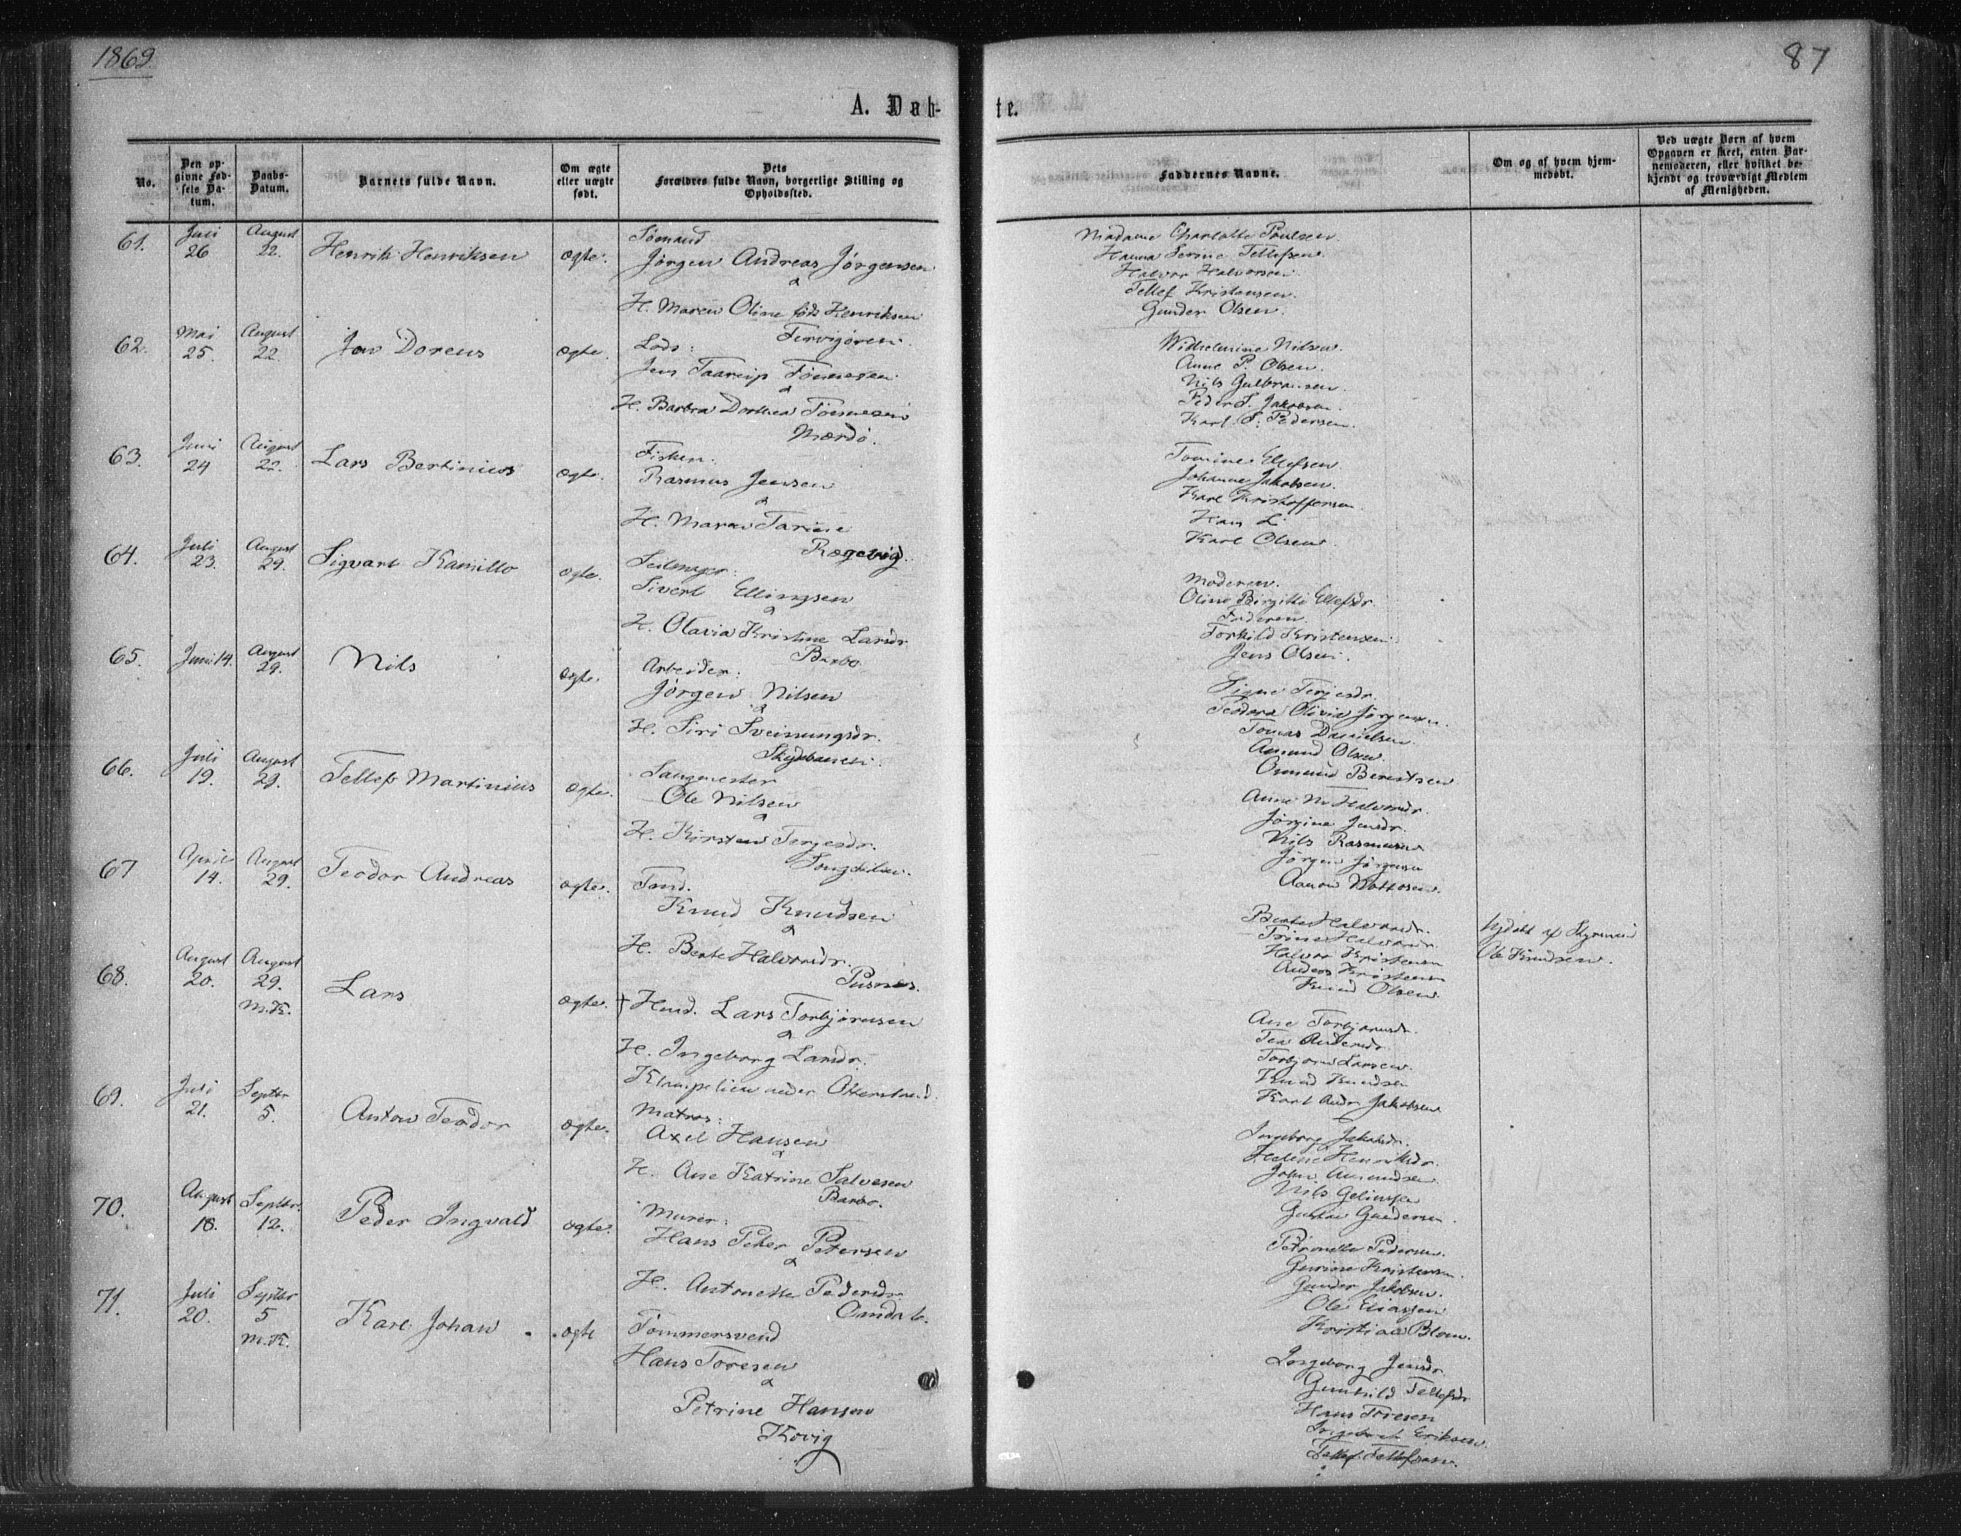 1869.
87
A. Døbte.
No.
Den opgivne Fødsels Datum.
Daabs-Datum.
Barnets fulde Navn.
Om ægte eller uægte født.
Dets Forældres fulde Navn, borgerlige Stilling og Opholdssted.
Faddernes Navne.
Om og af hvem hjemmedøbt.
Ved uægte Børn af hvem Opgaven er skeet, enten Barnemoderen, eller hvilket bekjendt og troværdigt Medlem af Menigheden.
61.
Juni 26
August 22.
Henrik Henriksen
ægte.
Sømand
Jørgen Andreas Jørgensen
&
H. Maren Oline født Henriksen
Madame Charlotte Poulsen.
Hanna Serine Tellefsen
Halvor Halvorsen
Tellef Kristensen.
Gunder Olsen.
62.
Mai 25.
August 22.
Jens Dorens
ægte.
Lods:
Jens Taarup Tønnesen
&
H. Barbra Dorthea Tønnesen
Mærdø.
Wilhelmine Nilsen.
Anne P. Olsen.
Nils Gulbransen.
Peder S. Jakobsen
Karl S. Pedersen.
63.
Juni 24
August 22.
Lars Bertinius
ægte.
Fisker.
Rasmus Jensen
&
H. Maren Tarine
Rægevig.
Tomine Ellefsen
Johanne Jakobsen.
Karl Kristoffersen
Karl Olsen.
64.
Juli 23.
August 29.
Sigvart Kamillo
ægte.
Seilmager.
Sivert Ellingsen
&
H. Olavia Kristine Larsdr
Barbo
Moderen.
Oline Birgitte Ellefsdr.
Faderen
Torkild Kristensen
Jens Olsen.
65.
Juni 14.
August 29.
Nils
ægte.
Arbeider.
Jørgen Nilsen
&
H. Siri Sveinungsdr.
Signe Terjesdr.
Teodora Olivia Jørgensen.
Tomas Danielsen
Amund Olsen
Osmund Berntsen
66.
Juli 19.
August 29.
Tellef Martinius
ægte.
Saugmester
Ole Nilsen
&
H. Kirsten Terjesdr.
Songekilen.
Anne M. Halvorsdr.
Jørgine Jensdr.
Nils Rasmussen
Jørgen Jørgensen
67
April 14.
August 29.
Teodor Andreas
ægte.
Tmd.
Knud Knudsen
&
H. Berte Halvorsdr.
Pusnes.
Berte Halvorsdr.
Trine Halvorsdr.
Halvor Kristensen
Anders Kristensen
Knud Olsen
Hjdøbt af Styrmand
Ole Knudsen.
68.
August 20.
August 29.
M.K.
Lars
ægte.
Hmd. Lars Torbjørnsen
&
H. Ingeborg Larsdr.
Ane Torbjørnsdr.
Tea Andersdr.
Torbjørn Larsen.
Knud Knudsen
Karl Andr. Jakobsen
69.
Juli 21.
Septbr 5.
Anton Teodor
ægte.
Matros:
Axel Hansen
&
H. Ane Katrine Salvesen
Barbo.
Ingeborg Jakobsdr.
Helene Henriksdr.
John Amundsen
Gustav Gundersen.
70.
August 18.
Septbr. 12.
Peder Ingvald
ægte.
Murer:
Hans Peter Petersen
&
H. Antonette Pedersdr.
Petronelle Pedersen.
Gurine Kristensen.
Gunder Jakobsen.
Ole Eliassen
Kristian Blom.
71.
Juli 20.
Septbr 5
M.K.
Karl Johan
ægte
Tømmersvend
Hans Toresen
&
Petrine Hansen
Kovig
Ingeborg Jensdr
Gunhild Tellefsdr
Hans Toresen
Ingebret Eriksen.
Tellef Tellefsen.